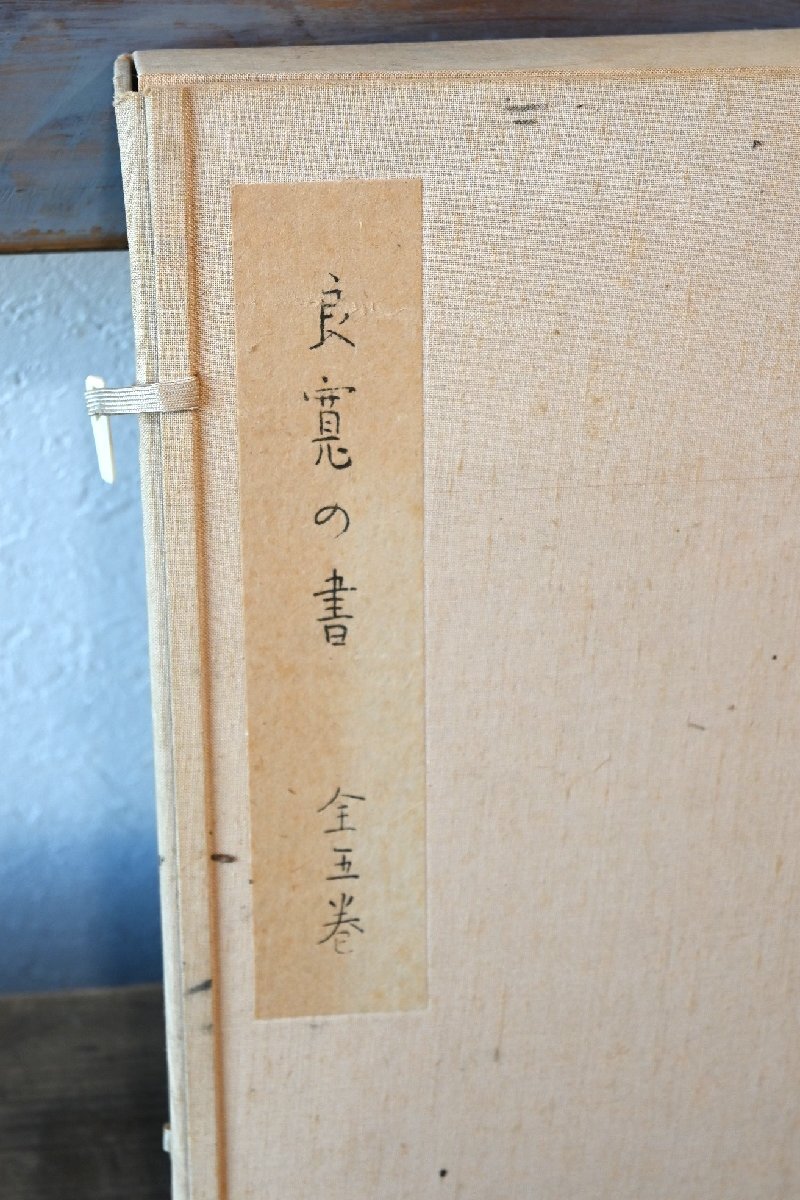 良寛の書 全五巻